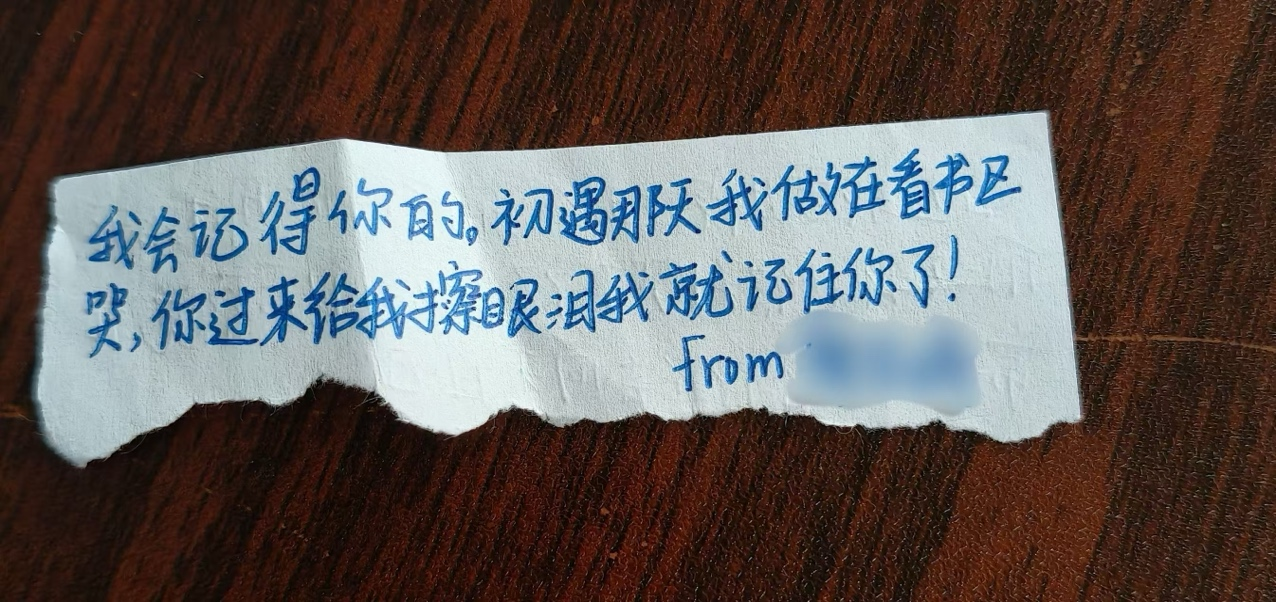 我会记得你的。初遇那天我做在看书区
哭，你过来给我擦眼泪我就记住你了！
from